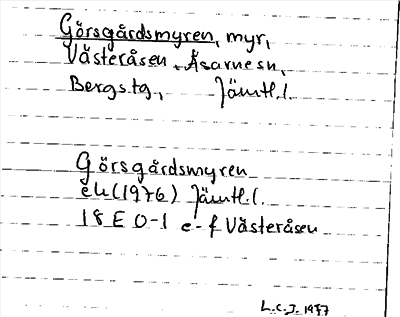 Görsgårdsmyren, myr,
Västeråsen, Åsarne sn,
Bergs tg., Jämtl. l.
Görsgårdsmyren
ek (1976) Jämtl. l.
18 E 0-1 e-f Västeråsen
L.C.J. 1977